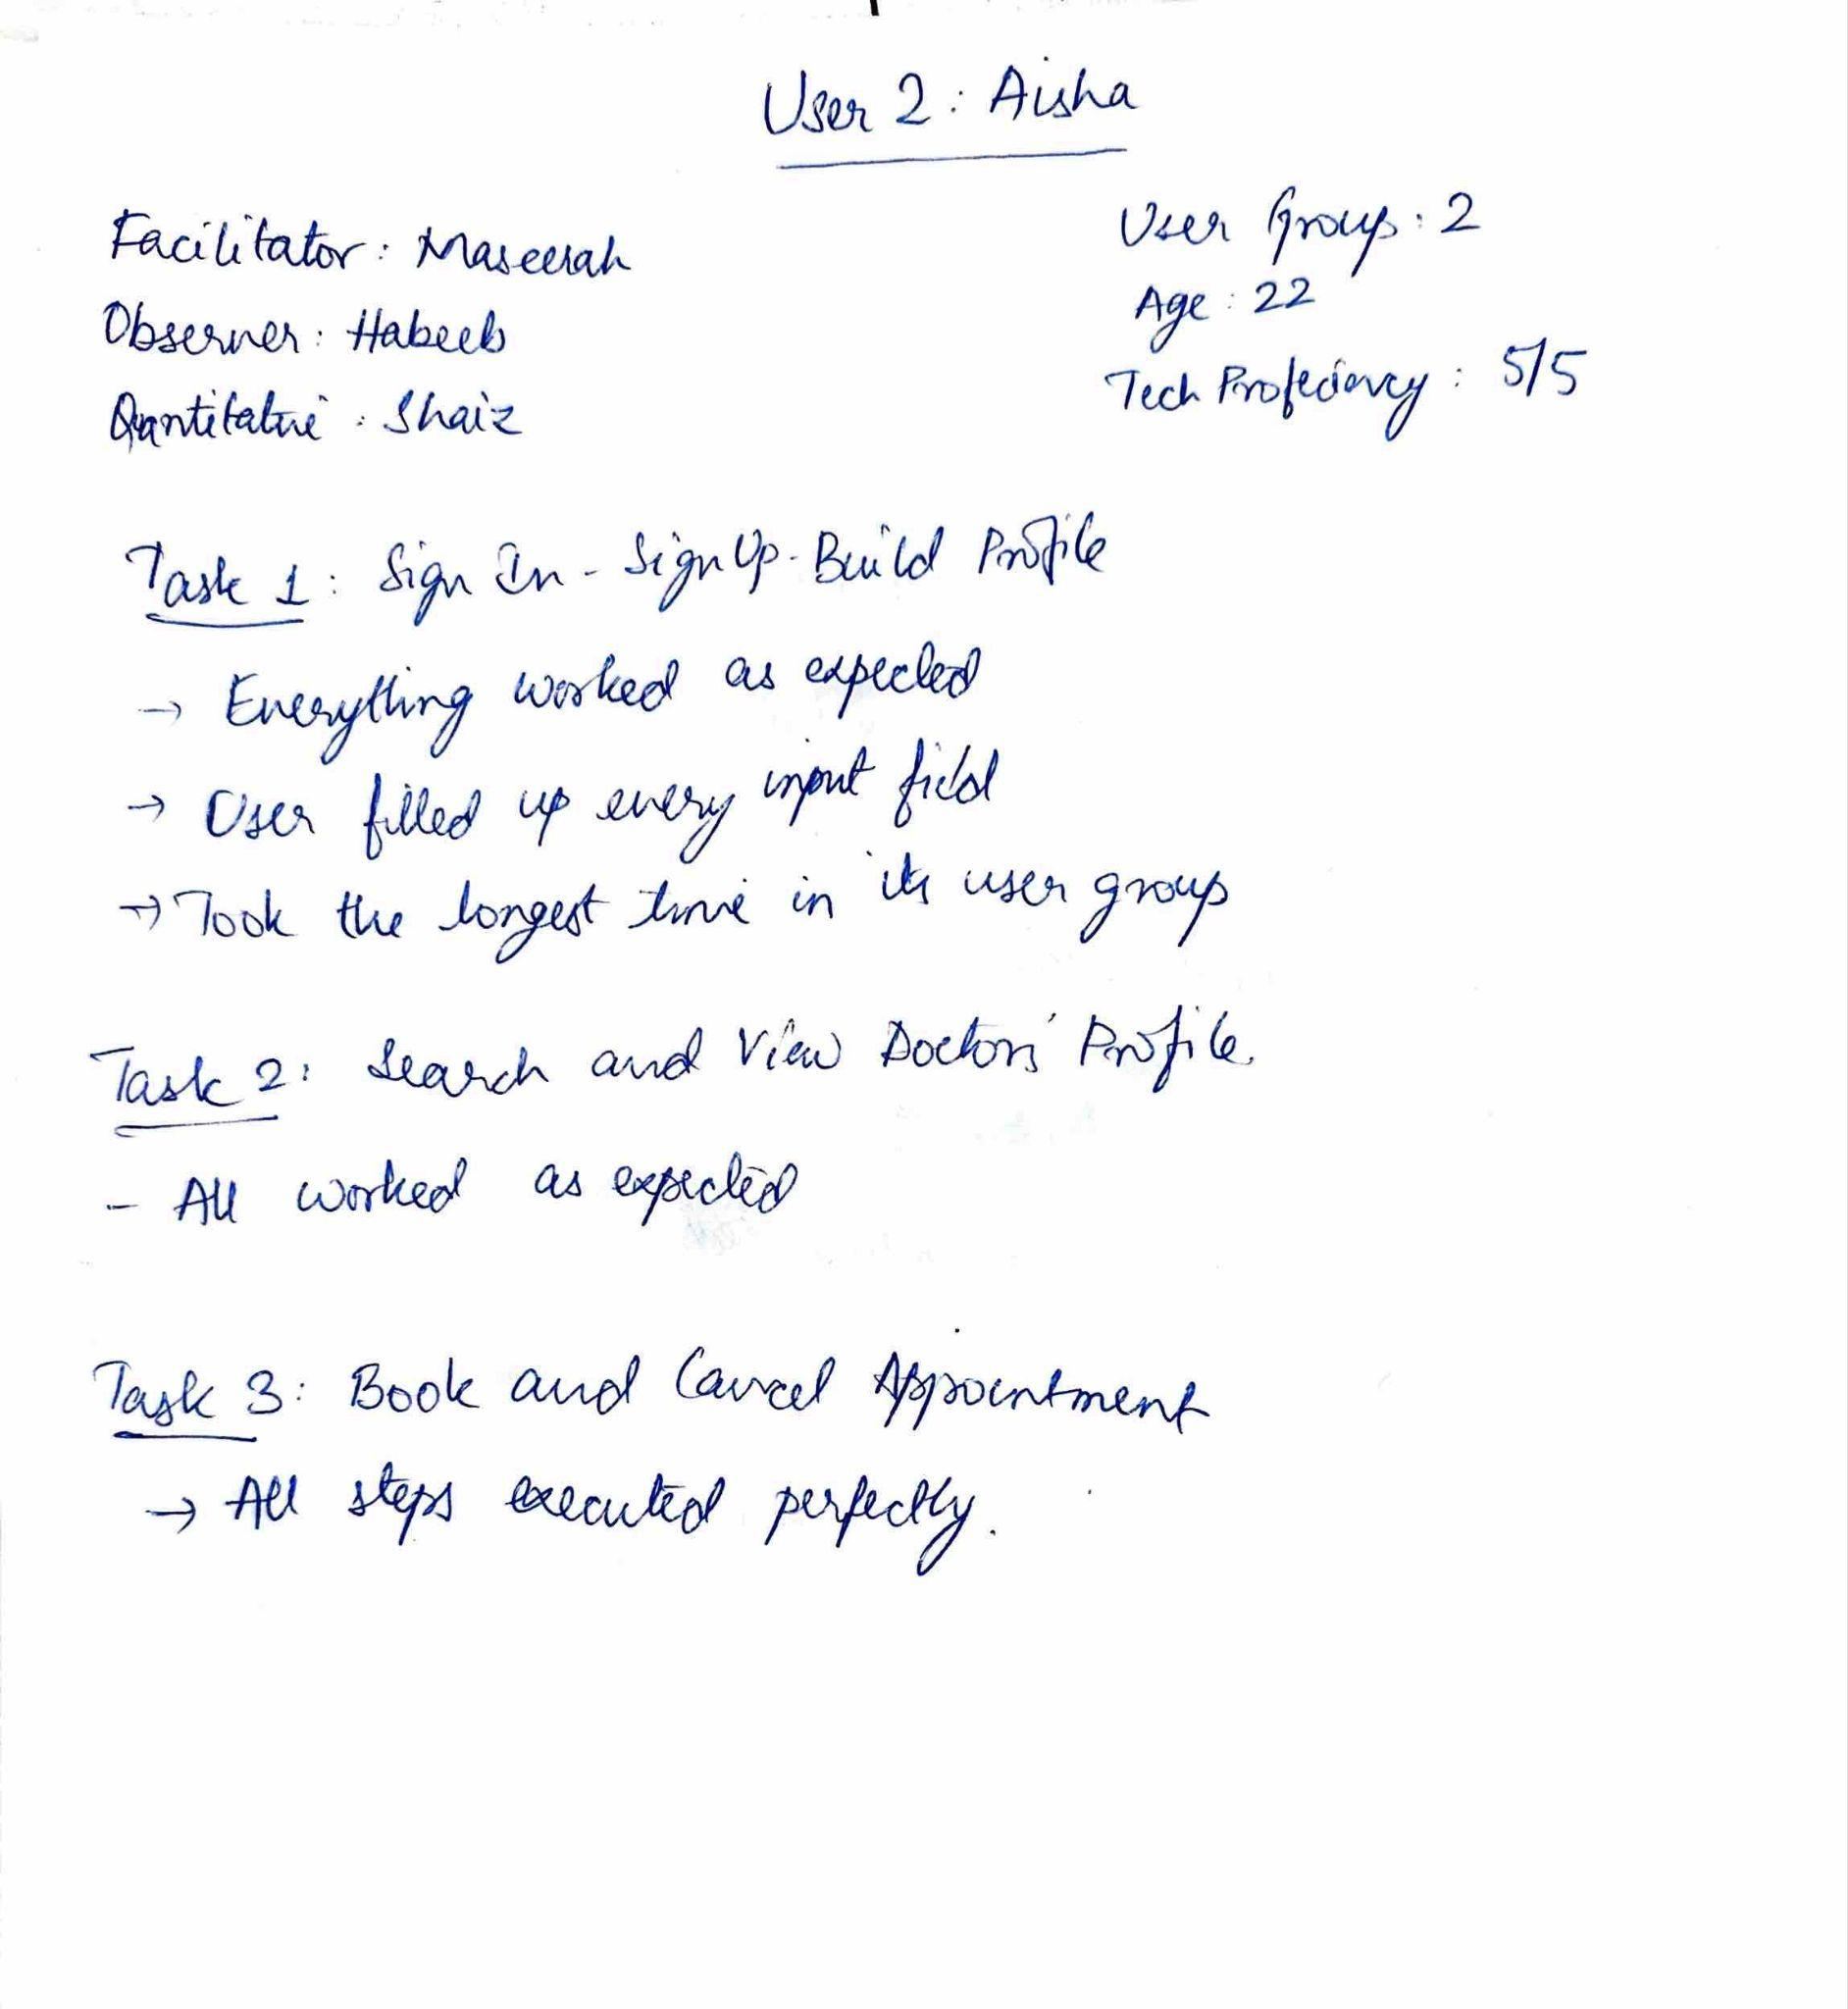 User 2 : Aisha
Facilitator : Maseerah
User Group : 2
Observer : Habeeb
Age : 22
Quantitative : Shaiz
Tech Proficiency : 5/5
Task 1 : Sign In - Sign Up - Build Profile
→ Everything worked as expected
→ User filled up every input field
→ Took the longest time in its user group
Task 2 : Search and View Doctors' Profile
- All worked as expected
Task 3 : Book and Cancel Appointment
→ All steps executed perfectly.